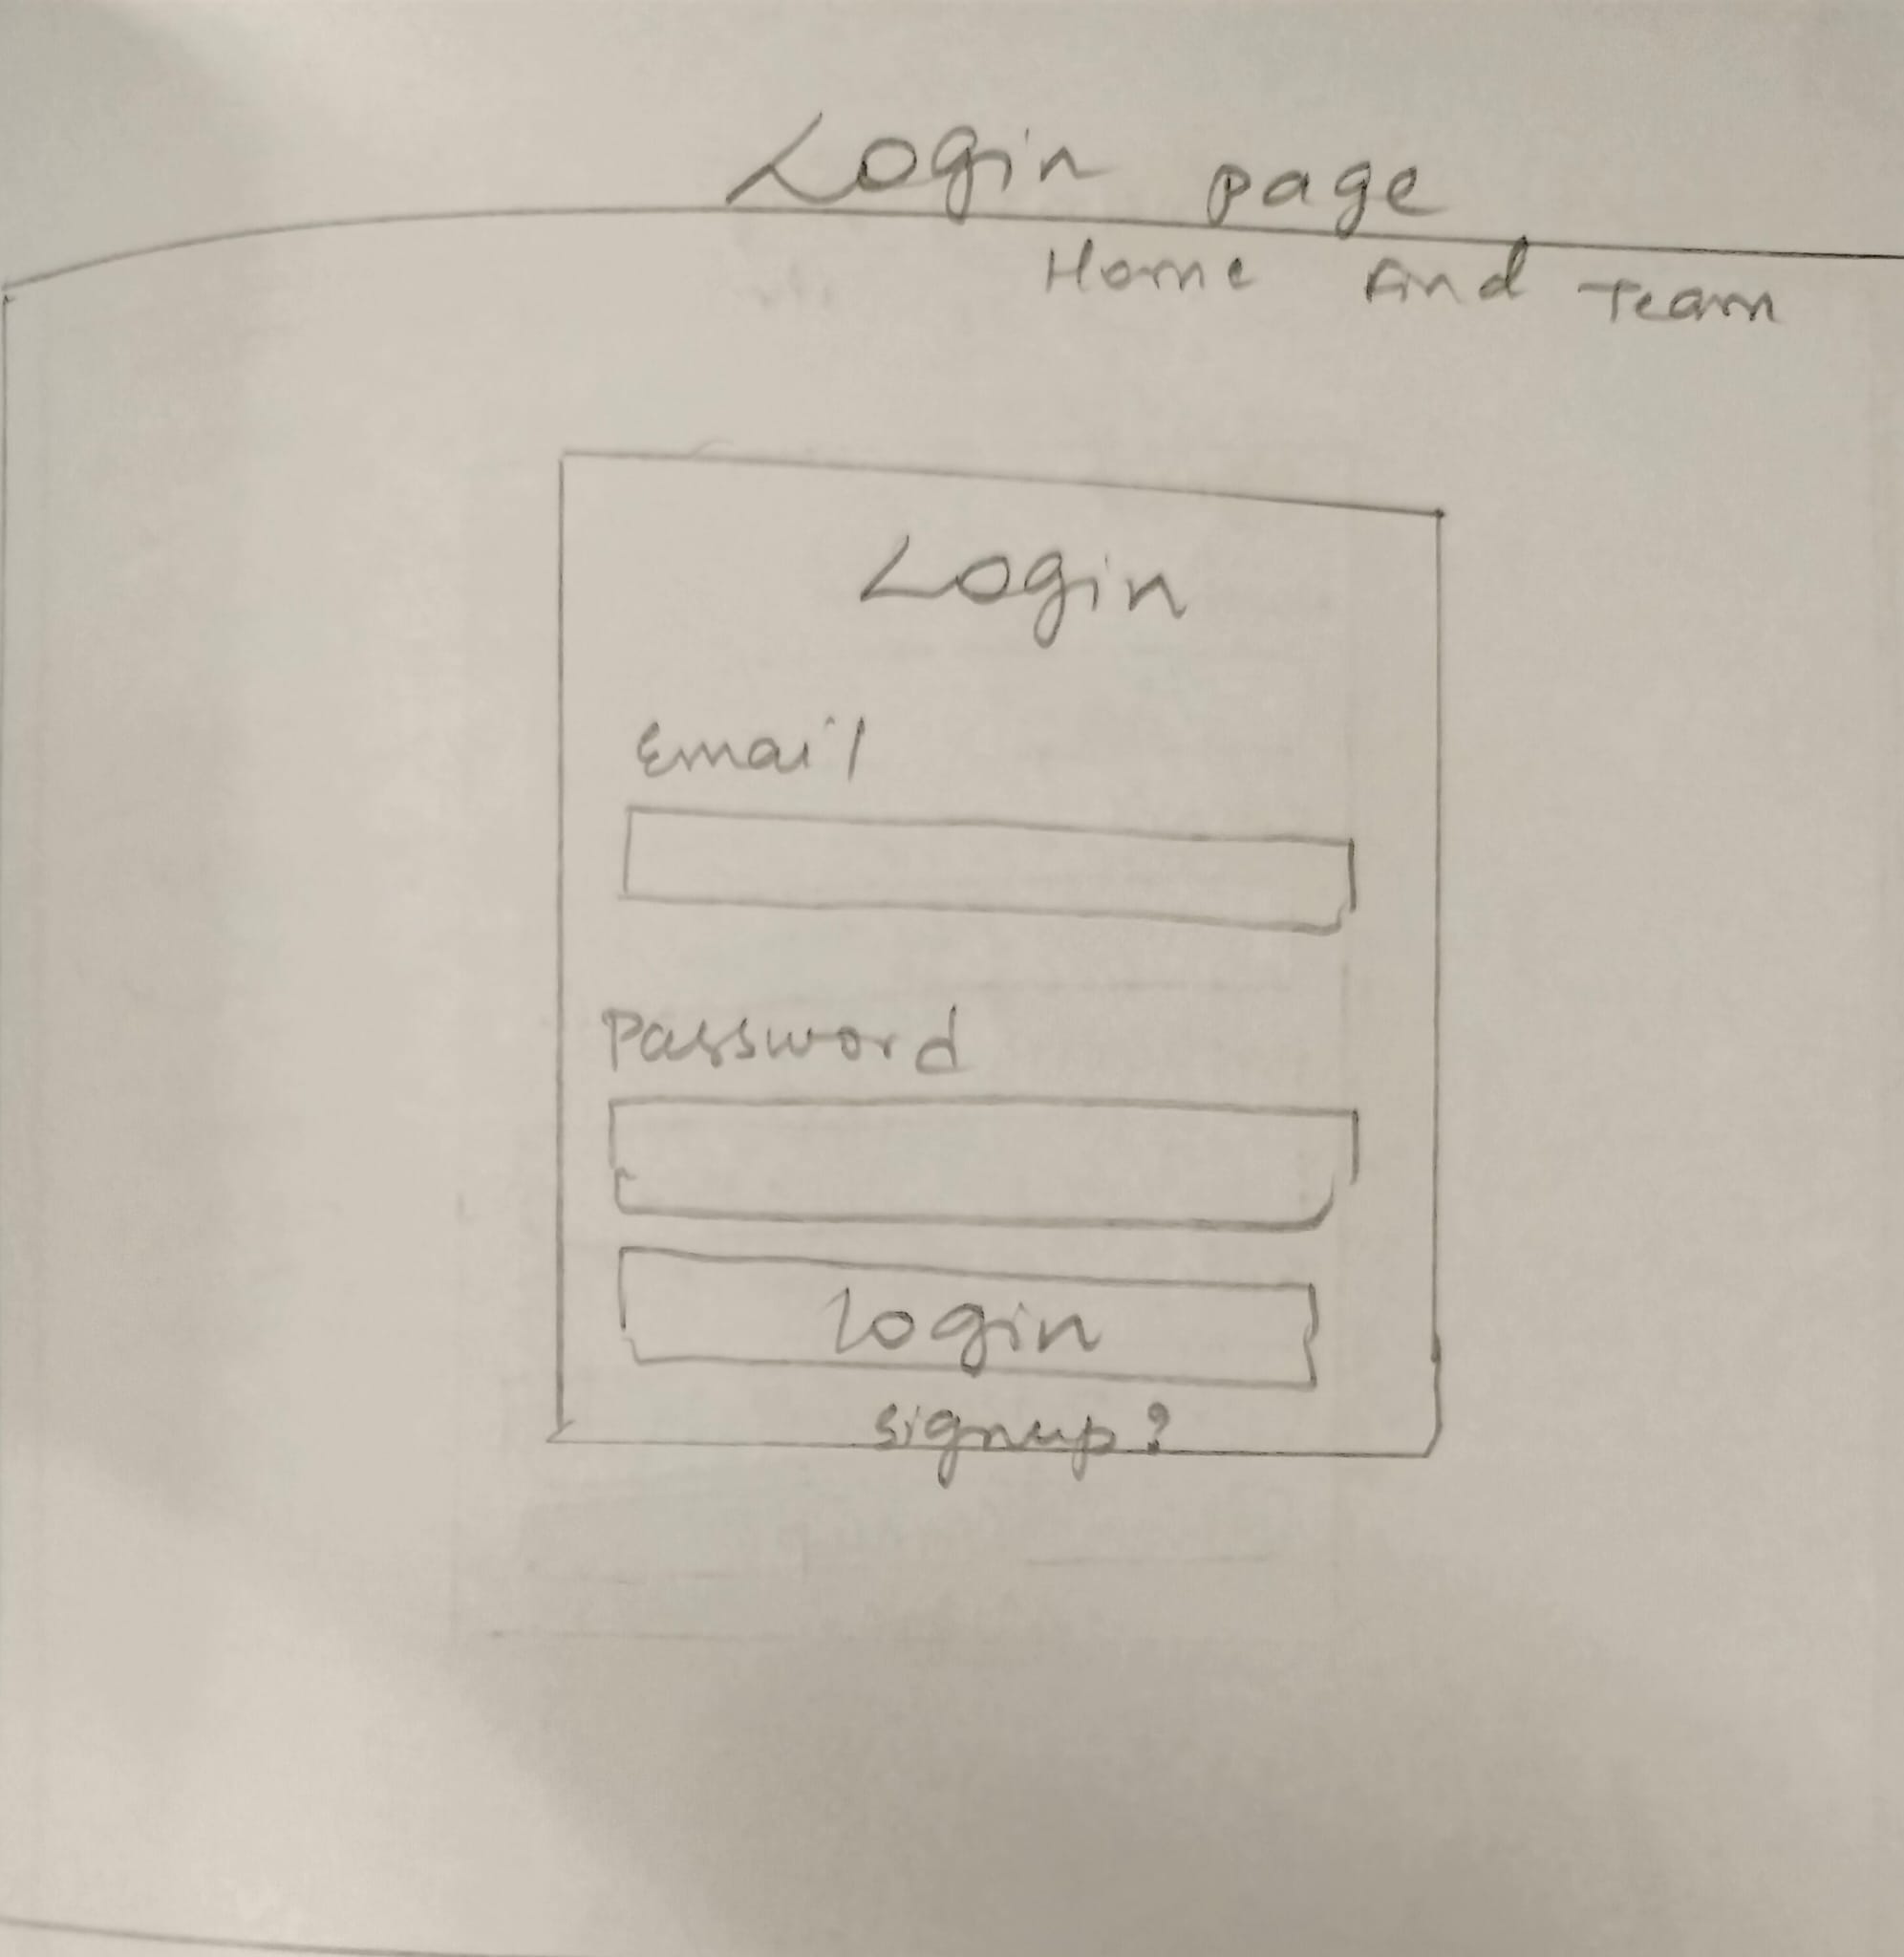 Login page
Home find Team
Login
Email
Password
login
signup?